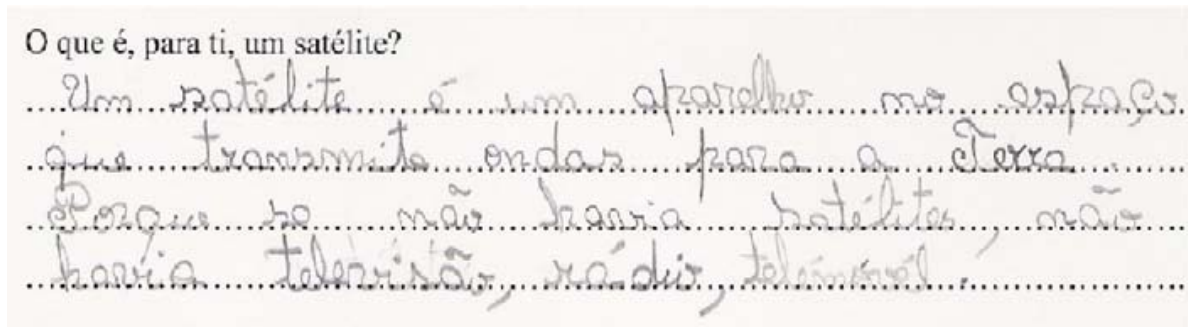 O que é, para ti, um satélite?
Um satélite é um aparelho no espaço
que transmite ondas para a Terra.
Porque se não havia satélites não
havia televisão, rádio, telemóvel.